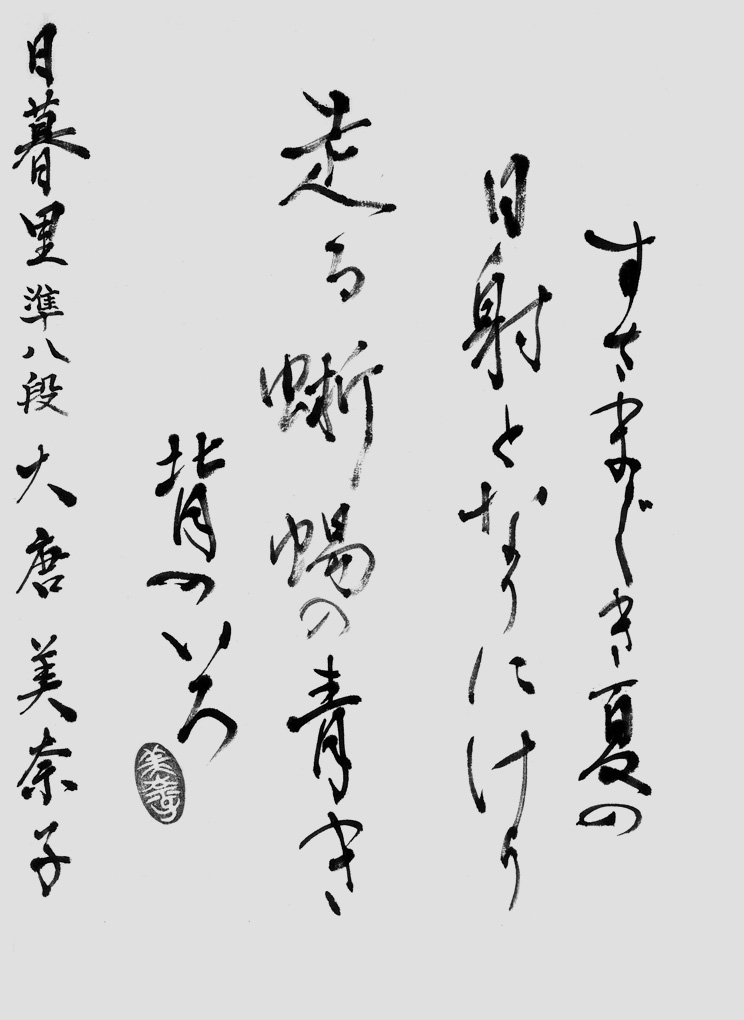 すさまじき夏の
日射となりにけり
走る蜥蜴の青き
背のいろ
日暮里準八段大唐美奈子